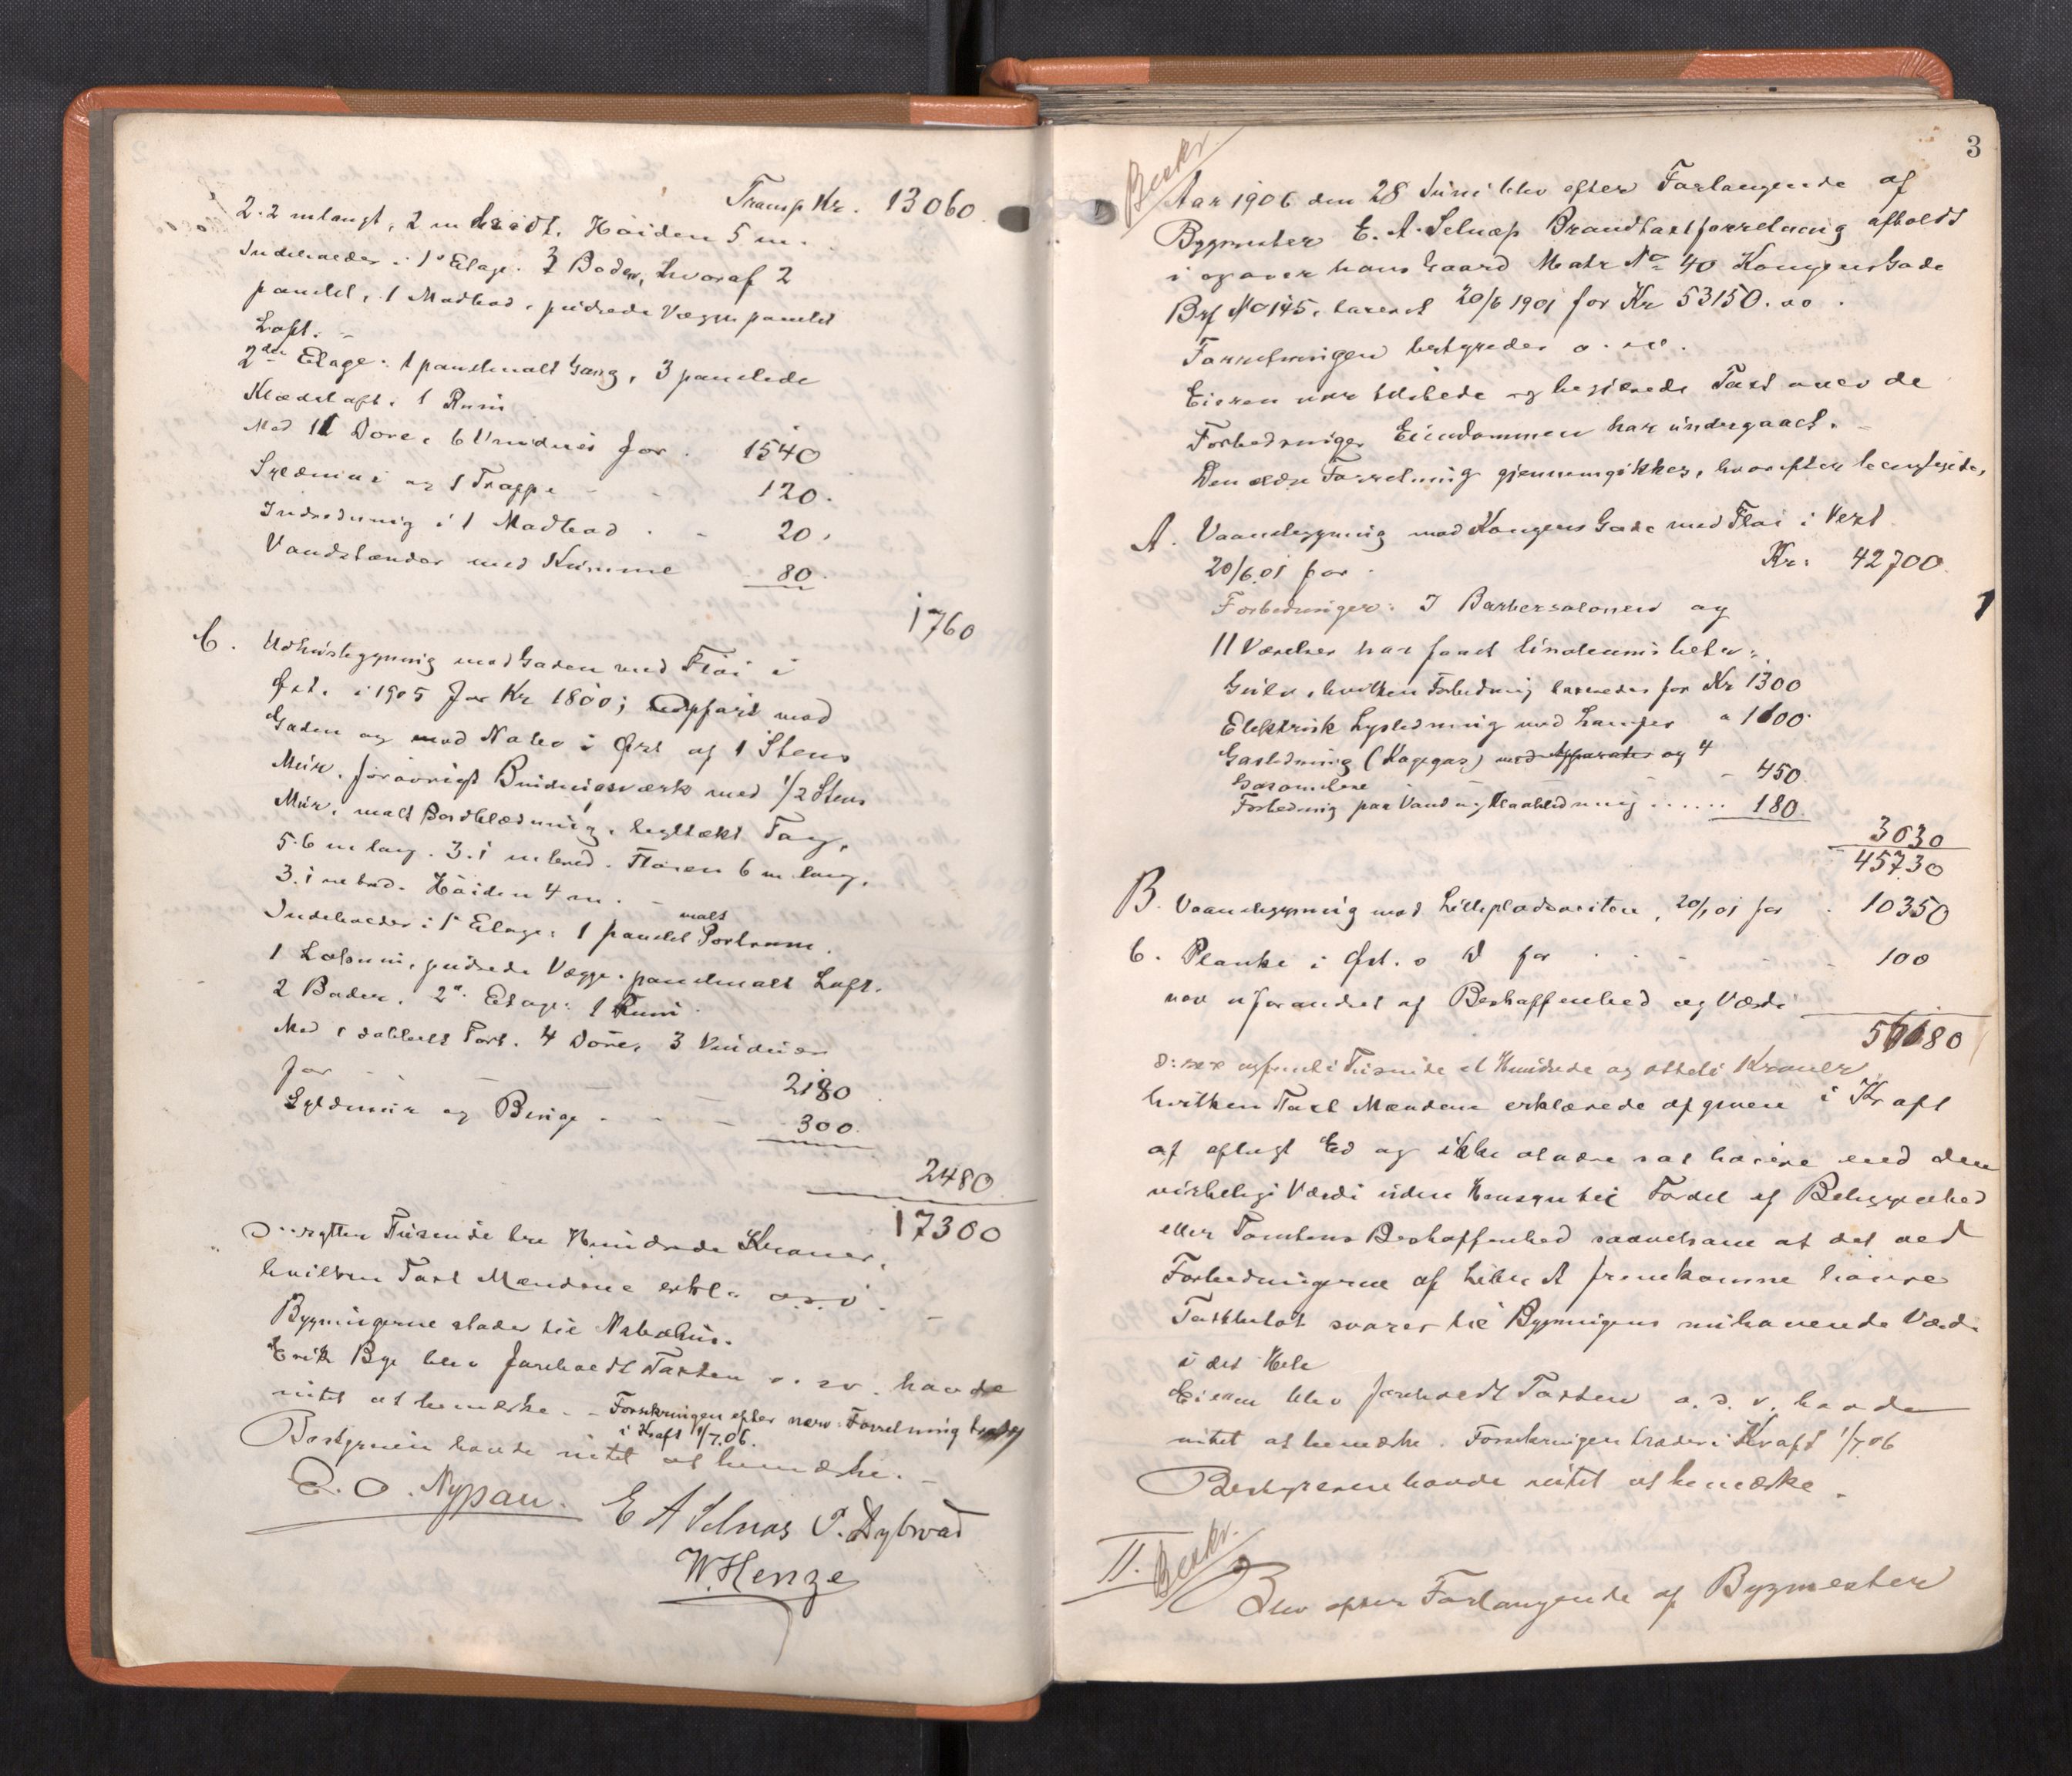 Transp Kr. 13060.
2.2 m langt, 2 m bredt. Höiden 5 m.
Indeholder i 1s Etage: 3 Boder, hvoraf 2
panelet, 1 Madbod, pudsede Vægge panelet
Loft. –
2den Etage: 1 panelmalt Gang, 3 panelede
Klædeloft. 1 Rum
Med 11 Dore, 6 Vinduer for . 1540
Skedmur og 1 Trappe - - 120.
Indredning i 1 Madbod . - 20.
Vandstænder med Kumme 80.
1760
C. Udhusbygning mod Gaden med Flöi i
Öst. i 1905 for Kr 1800; Opført mod
Gaden og mod Nabo i Öst af 1 Stens
Mur. forövrigt Bindingsværk med 1/2 Stens
Mur, malt Bordklædning, tegltækt Tag,
5.6 m lang. 3.1 m bred. Flöien 6 m lang,
3.1 m bred. Höiden 4 m. –
malt
Indeholder i 1s Etage: 1 panelet Portrum.
1 Lokum, pudsede Vægge. panelmalt Loft.
2 Boder. 2n Etage: 1 Rum.
Med 1 dobbelt Port. 4 Döre, 3 Vinduer
for - - - 2180
Skedmur og Binge . - - 300.
2480
17300
ɔ: sytten Tusende tre Hundrede Kroner,
hvilken Taxt Mændene erkl. o.s.v. –
Bygningerne stöder til Nabohus.
Erik Bye blev foreholdt Taxten o. sv. havde
intet at bemærke. – Forsikringen efter nærv. Forretning træder
i Kraft 1/7.06.
Bestyreren havde intet at bemærke. –
E. O. Nypan. E A Selnæs P. Dybwad
W. Henze
3
Beskr.
Aar 1906 den 28 Juni blev efter Forlangende af
Bygmester E. A. Selnæs Brandtaxtforretning afholdt
i og over hans Gaard Matr No 40 Kongens Gade
Brf No 145, taxeret 20/6 1901 for Kr 53150.00.
Forretningen bestyredes o. sv.
Eieren var tilstede og begjærede Taxt over de
Forbedringer Eiendommen har undergaaet. –
Den ældre Forretning gjennemgikkes, hvorefter besigtigedes,
A. Vaaningsbygning mod Kongens Gade med Flöi i Vest
20/6.01 for . Kr. 42700.
Forbedringer: I Barbersalonen og
11 Værelser har faaet linoleumsbelagte
Gulv, hvilken Forbedring taxeredes for Kr 1300
Elektrisk Lysledning med Lamper " 1100.
Gasledning (Kogegas) med Apparater og 4
Gasovnlene - 450.
Forbedring paa Vand og Kloakledning ...... 180.
3030
45730
B. Vaaningsbygning mod Lilleplads 20/6 01 for . 10350
C. Planke i Öst. o d for . . - - - 100
var uforandret af Beskaffenhed og Værdi
56180
ɔ: sex og femti Tusinde et Hundrede og otteti Kroner,
hvilken Taxt Mændene erklærede afgiven i Kraft
af aflagt Ed og ikke at være sat höiere end den
virkelige Værdi uden Hensyn til Fordel af Beliggenhed
eller Tomtens Beskaffenhed saavelsom at det ved
Forbedringerne af Litra A fremkomne höiere
Taxtbelöb svarer til Bygningens nuhavende Værdi
i det Hele
Eieren blev foreholdt Taxten o. s. v. havde
intet at bemærke. Forsikringen træder i Kraft 1/7 06
Bestyreren havde intet at bemærke. –
II. Beskr.
Blev efter Forlangende af Bygmester